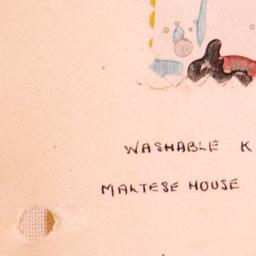 WASHABLE K
MALTESE HOUSE